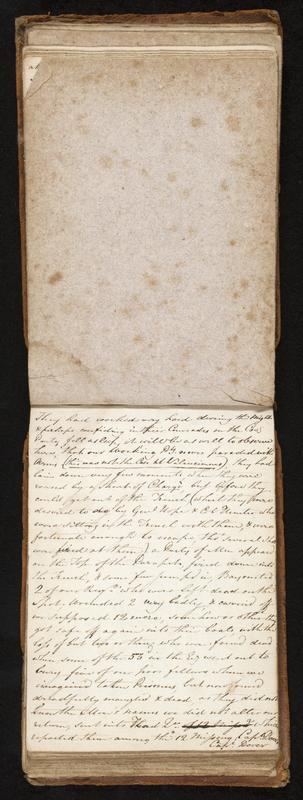 They had worked very hard during the Night
& perhaps confiding in their Comrades on the Cov.
Party, fell asleep, it will be as well to observe
here, that our Working Py. were paraded with
Arms (this was not the case at Valenciennes) They had
lain down very few mins. when they were
roused by a shout of Charge but before they
could get out of the Trench (what they were
desired to do by Genl. Hope & Hunter who
were sitting in the Trench with them, & were
fortunate enough to escape, tho several shots
were fired at them) a Party of Men appeared
on the Top of the Parapets, fired down into
the Trench, & some few jumped in Bayoneted
2 of our Regt. who were left dead on the
Spot, Wounded 2 very badly, & carried off
we supposed 12 more, somehow or other they
got safe off again into their boats with the
loss of but two or three who were found dead
Soon some of the 55th in the Evg. went out to
bury four of our poor fellows whom we
imagined taken Prisoners, but were found
dreadfully mangled & dead, as they did not
know the Mens names nor did not alter our
return, sent into Head Qrs. which
reported them among the 12 Missing, Capt.
Capt. Dover